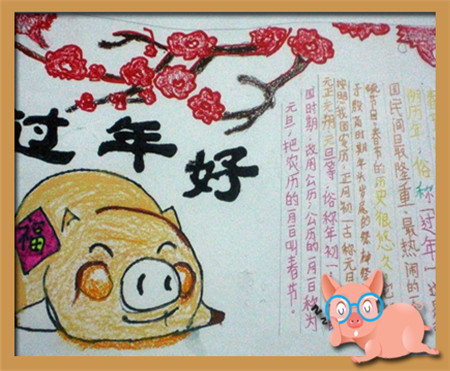 过年好
福
历年，俗称「过年」
国民间最隆重、最热闹的一
节日。春节的历史很悠久
于殷商时期年头岁尾的祭神祭
按照我国农历，正月初一古称元日
元正、元朔、元旦等，俗称年初一
国时期，改用公历，公历的一月一日称为
元旦，把农历的一月一日叫春节。